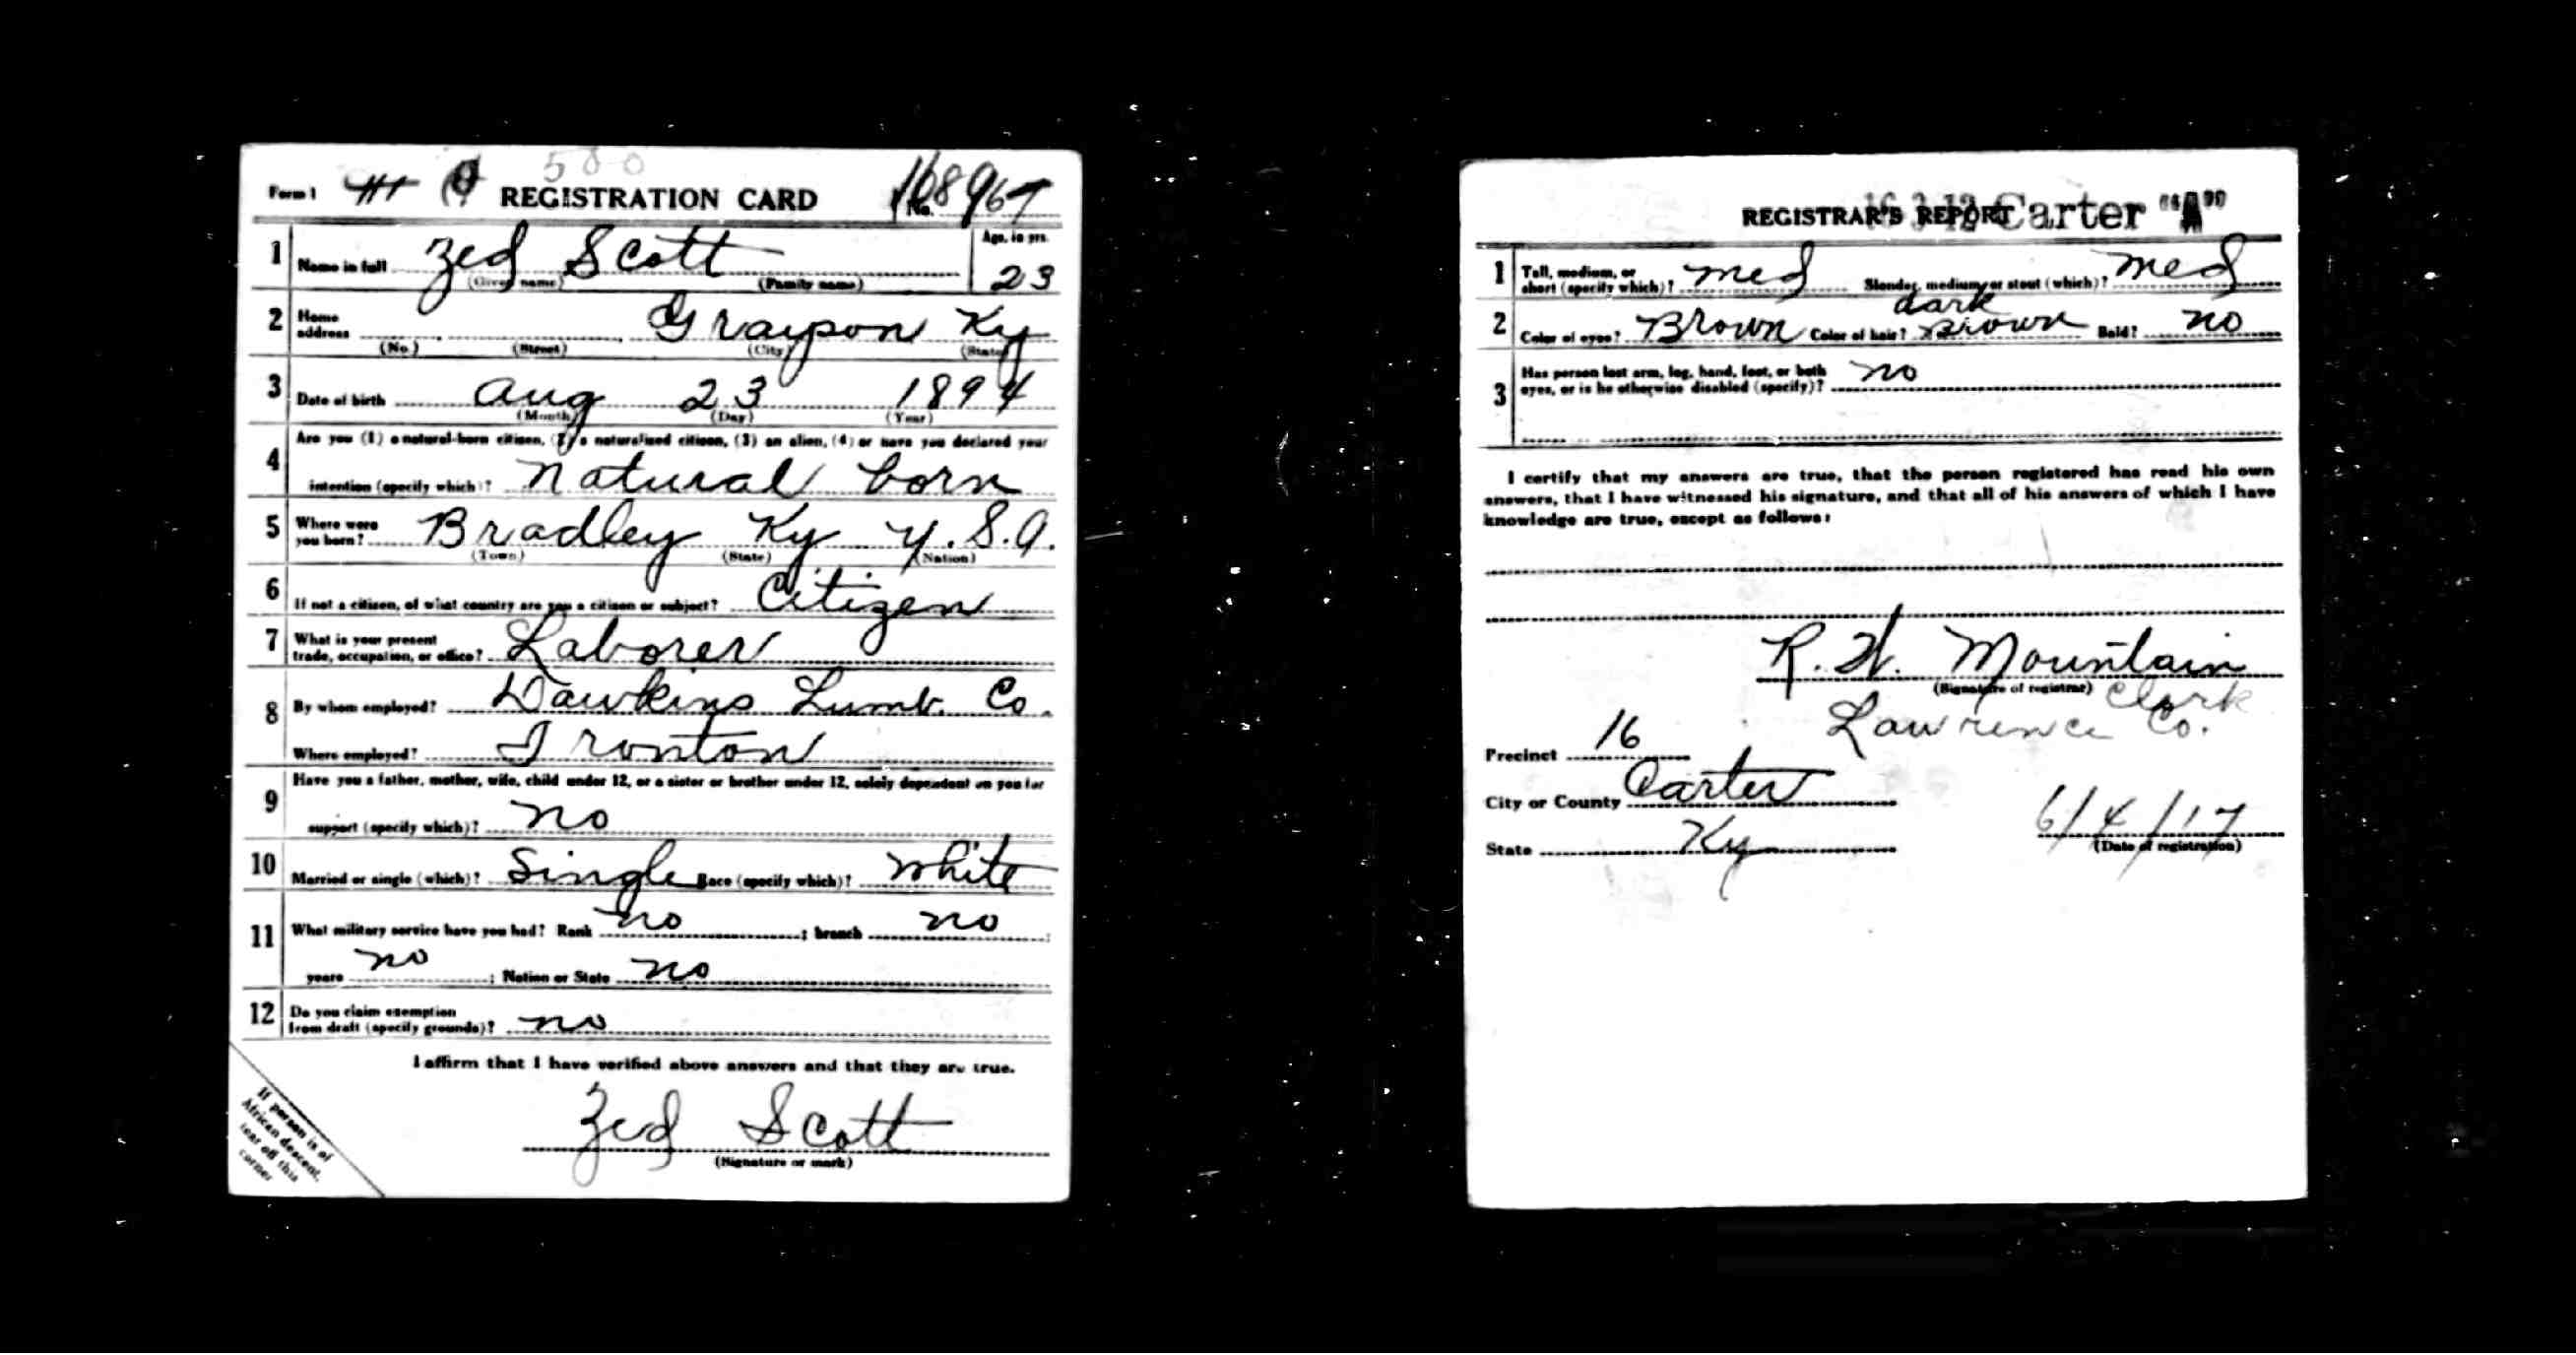 580
Form 1 REGISTRATION CARD No.
1 Name in full Zed Scott Age, in yrs. 23
(Given name) (Family name)
2 Home address Grayson Ky
(No.) (Street) (City) (State)
3 Date of birth Aug 23 1894
(Month) (Day) (Year)
4 Are you (1) a natural-born citizen, (2) a naturalized citizen, (3) an alien, (4) or have you declared your
intention (specify which)? Natural born
5 Where were you born? Bradley Ky U.S.A.
(Town) (State) (Nation)
6 If not a citizen, of what country are you a citizen or subject? Citizen
7 What is your present trade, occupation, or office? Laborer
8 By whom employed? Dawkins Lumb. Co.
Where employed? Ironton
9 Have you a father, mother, wife, child under 12, or a sister or brother under 12, solely dependent on you for
support (specify which)? no
10 Married or single (which)? Single Race (specify which)? White
11 What military service have you had? Rank no ; branch no ;
years no ; Nation or State no
12 Do you claim exemption from draft (specify grounds)? no
I affirm that I have verified above answers and that they are true.
Zed Scott
(Signature or mark)
If person is of
African descent,
tear off this
corner
REGISTRAR'S REPORT Carter "A"
1 Tall, medium, or short (specify which)? med Slender, medium, or stout (which)? med
dark
2 Color of eyes? Brown Color of hair? Brown Bald? no
3 Has person lost arm, leg, hand, foot, or both eyes, or is he otherwise disabled (specify)? no
I certify that my answers are true, that the person registered has read his own
answers, that I have witnessed his signature, and that all of his answers of which I have
knowledge are true, except as follows:
R. W. Mountain
(Signature of registrar) Clerk
Lawrence Co.
Precinct 16
City or County Carter
State Ky 6/4/17
(Date of registration)